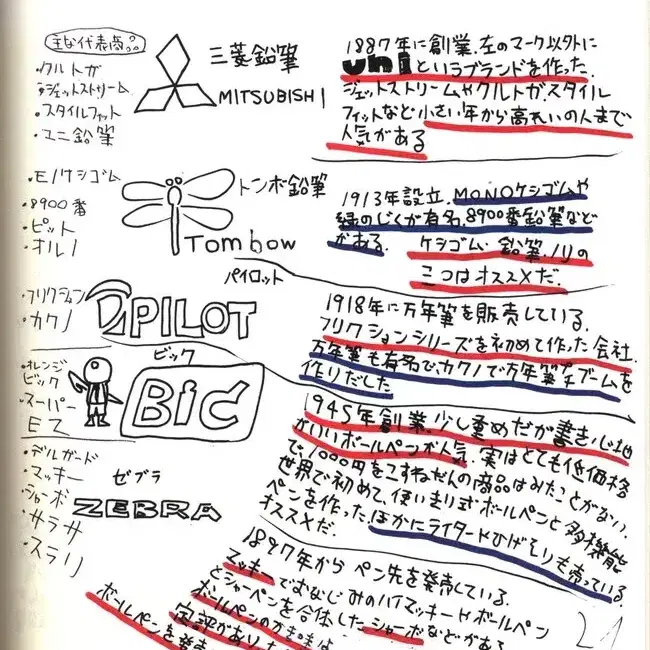 主な代表商品
・クルトガ
・ジェットストリーム
・スタイルフィット
・ユニ鉛筆
三菱鉛筆
MITSUBISHI
1887年に創業.左のマーク以外に
uniというブランドを作った.
ジェットストリームやクルトガ.スタイル
フィットなど小さい年から高れいの人まで
人気がある
・モノケシゴム
・8900番
・ピット
・オルノ
トンボ鉛筆
Tombow
1913年設立.MONOケシゴムや
緑のじくが有名.8900番鉛筆など
がある.
ケシゴム.鉛筆.ノリの
三つはオススメだ.
・フリクション
・カクノ
パイロット
PILOT
1918年に万年筆を販売している.
フリクションシリーズを初めて作った会社.
万年筆も有名で.カクノで万年筆プチブームを
作りだした
・オレンジ
ビック
・スーパー
EZ
ビック
BIC
1945年創業.少し重めだが書き心地
がいいボールペンが人気.実はとても低価格
で.1000円をこすねだんの商品はみたことがない.
世界で初めて.使いきり式ボールペンと多機能
ペンを作った.ほかにライターやひげそりも売っている.
オススメだ.
・デルガード
・マッキー
・シャーボ
・サラサ
・スラリ
ゼブラ
ZEBRA
1897年からペン先を発売している.
マッキーでおなじみのハイマッキーやボールペン
とシャーペンを合体したシャーボなどがある
ボールペンのかき味は
定評があり
ボールペンを発売
21